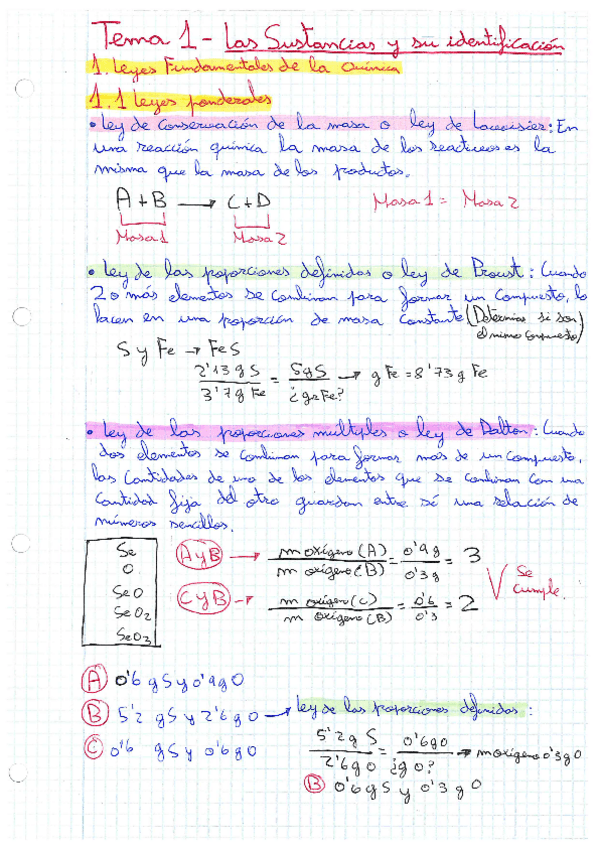 Tema 1 - Las Sustancias y su identificación
1. Leyes Fundamentales de la Química
1.1 Leyes ponderales
• Ley de Conservación de la masa o ley de Lavoisier: En
una reacción química la masa de los reactivos es la
misma que la masa de los productos.
A + B → C + D    Masa 1 = Masa 2
Masa 1    Masa 2
• Ley de las proporciones definidas o ley de Proust: Cuando
2 o más elementos se combinan para formar un compuesto, lo
hacen en una proporción de masa constante (Determinar si son
el mismo compuesto)
S y Fe → FeS
2'13 g S / 3'7 g Fe = 5 g S / ¿gr Fe? → g Fe = 8'73 g Fe
• Ley de las proporciones multiples o ley de Dalton: Cuando
dos elementos se combinan para formar mas de un compuesto,
las Cantidades de uno de los elementos que se combinan con una
Cantidad fija del otro guardan entre sí una relación de
números sencillos.
Se
O
SeO
SeO2
SeO3
A y B → m oxígeno (A) / m oxígeno (B) = 0'9 g / 0'3 g = 3
C y B → m oxígeno (C) / m oxígeno (B) = 0'6 / 0'3 = 2
√ Se cumple.
A 0'6 g S y 0'9 g O
B 5'2 g S y 2'6 g O → Ley de las proporciones definidas:
C 0'6 g S y 0'6 g O
5'2 g S / 2'6 g O = 0'6 g O / ¿g O? → m oxígeno 0'3 g O
B 0'6 g S y 0'3 g O